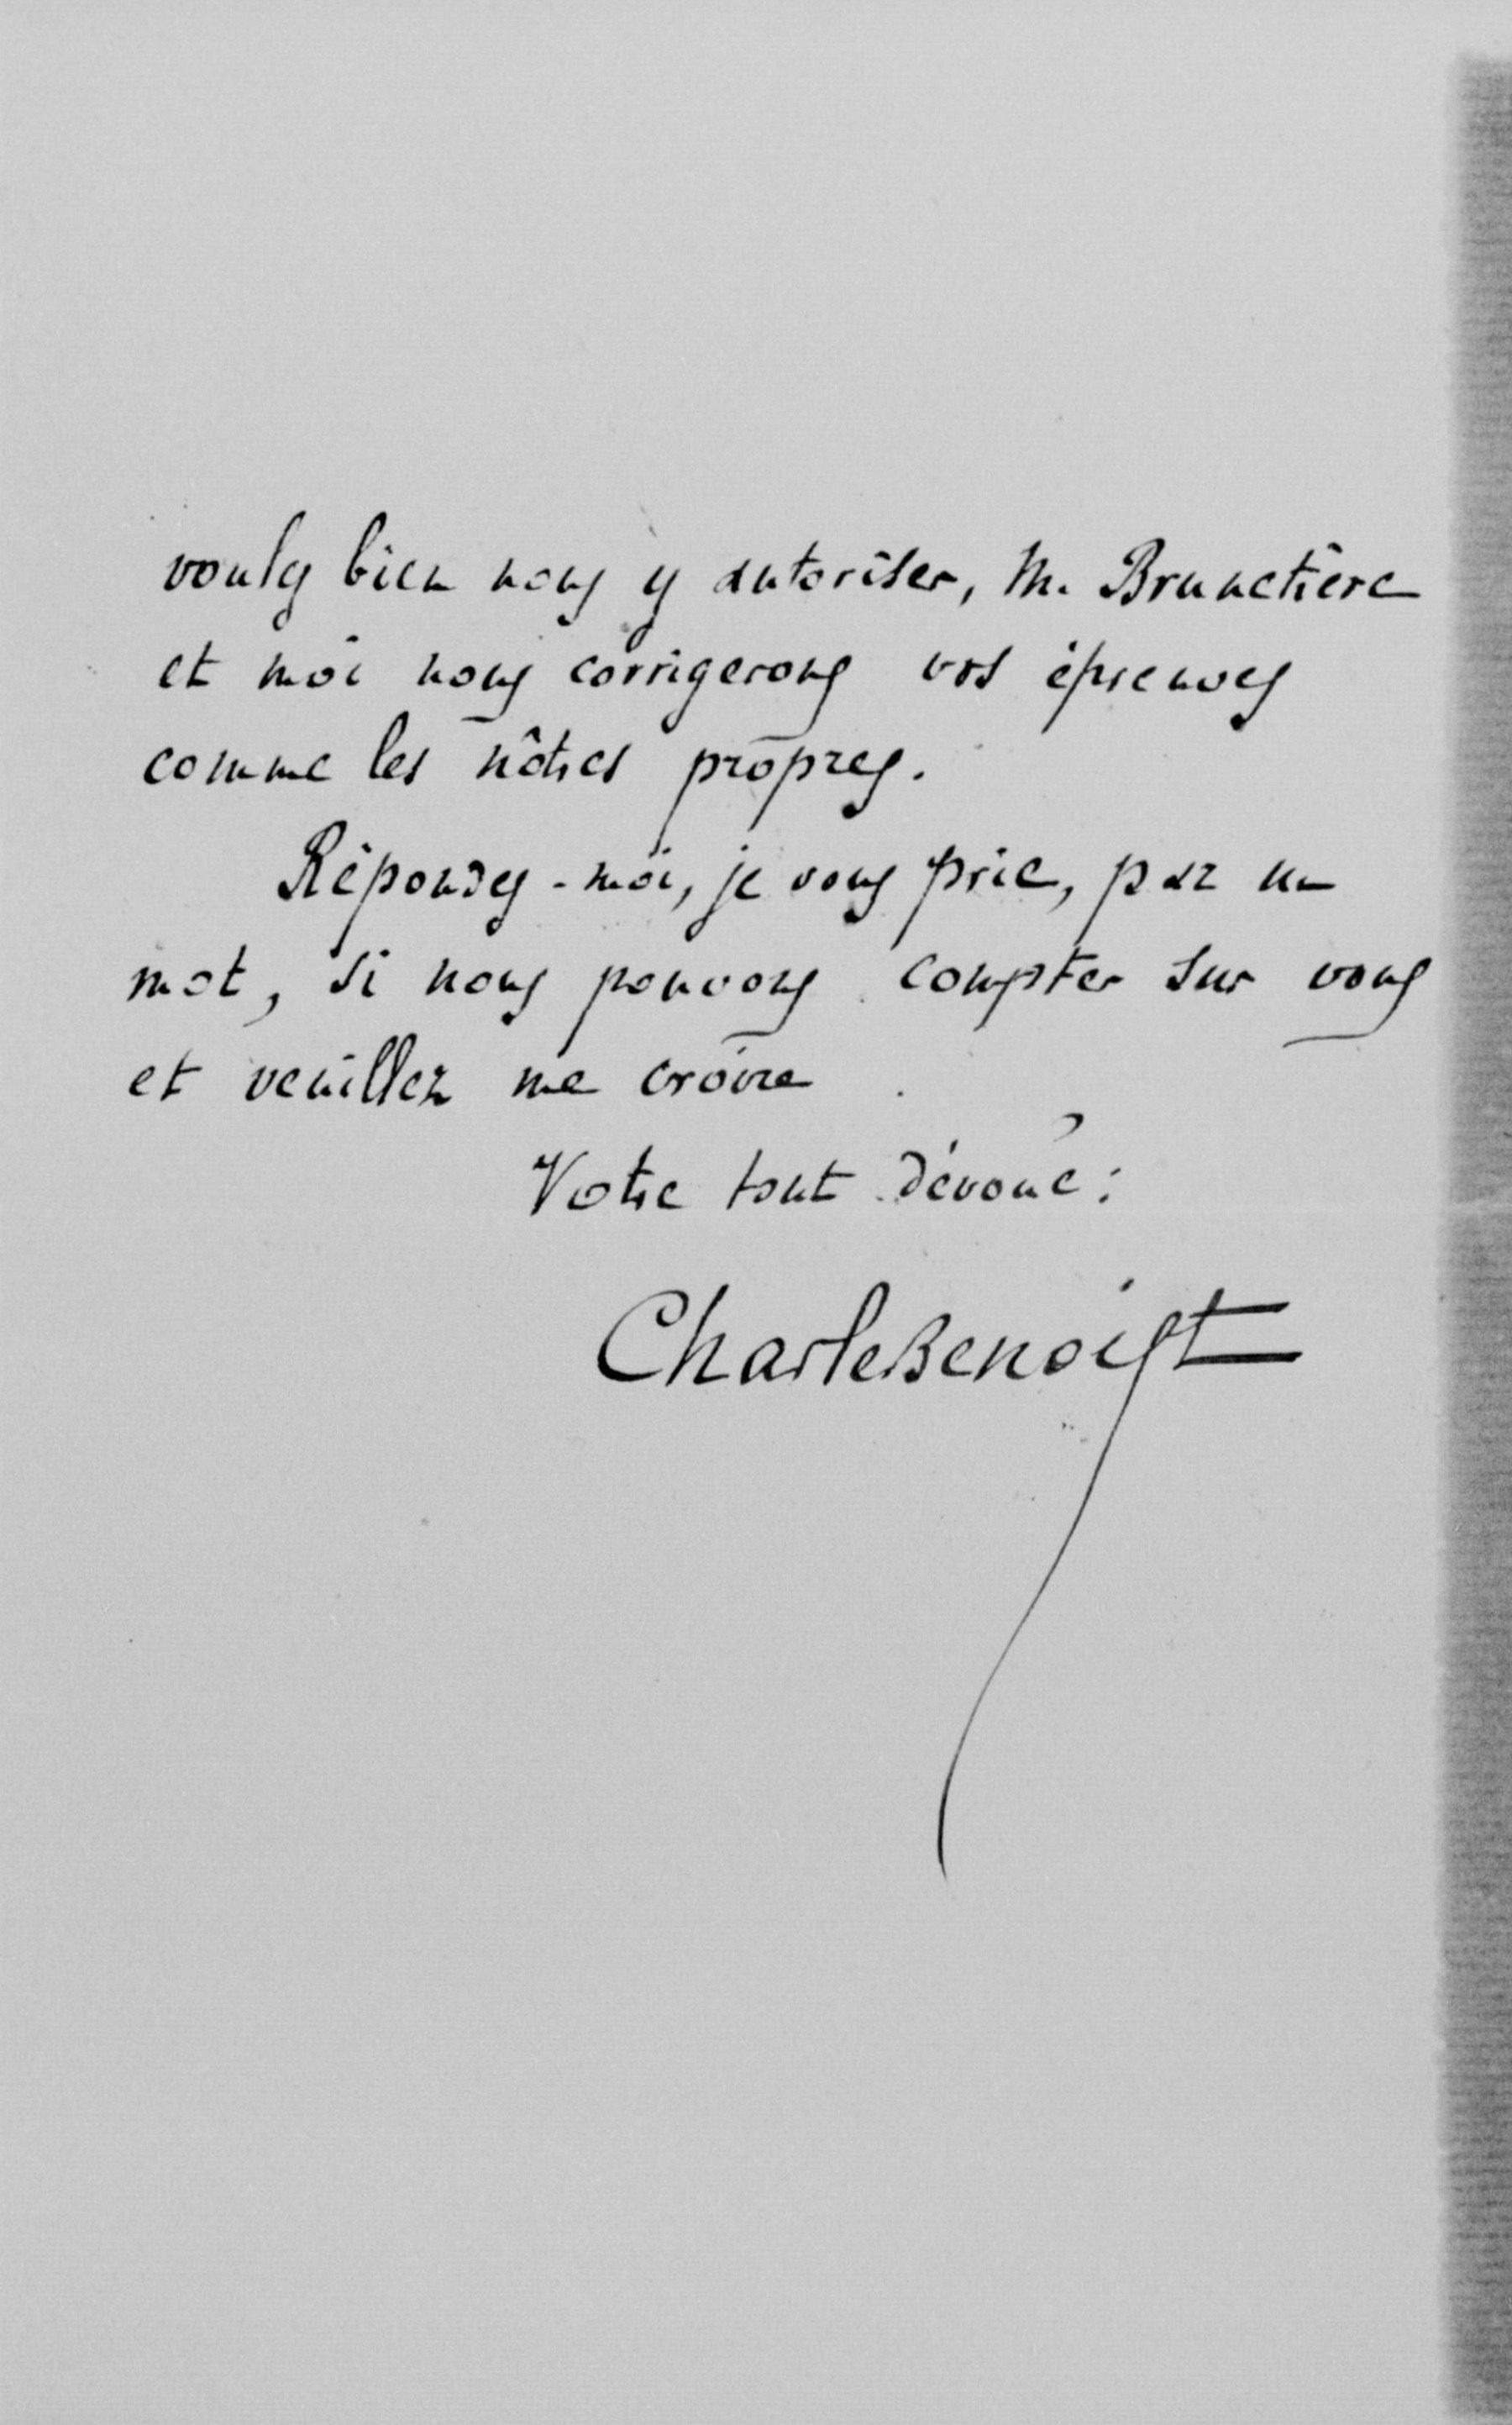 voulez bien nous y autoriser, M. Brunetière
et moi nous corrigerons vos épreuves
comme les nôtres propres.
Répondez-moi, je vous prie, par un
mot, si nous pouvons compter sur vous
et veuillez me croire
Votre tout dévoué :
Charles Benoist